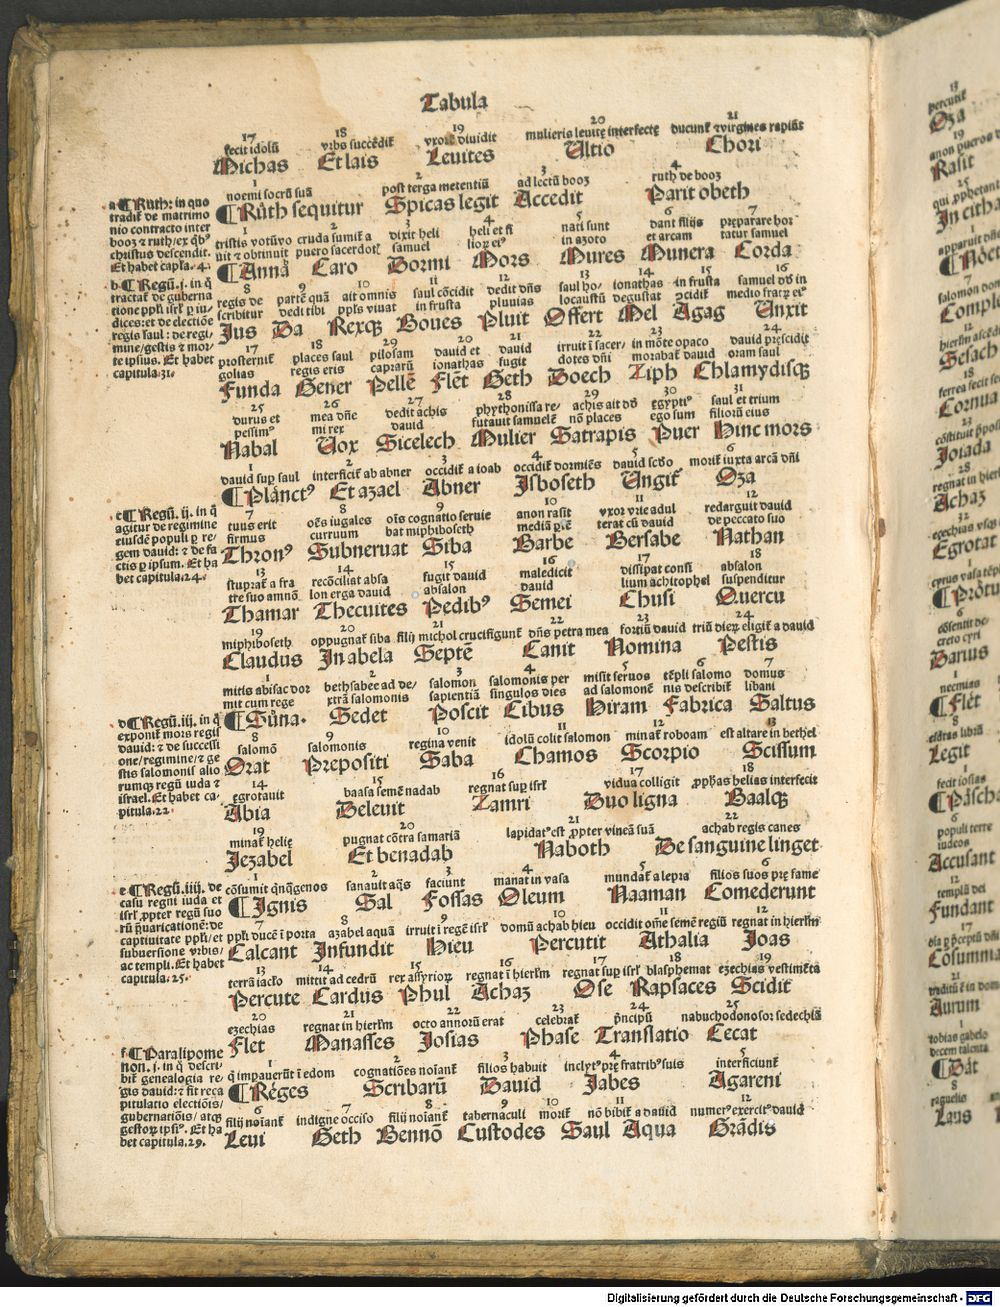 Tabula
17 18 19 20 21
fecit idolū vrbs succēdit̄ vxorē diuidit mulieris leuitę interfectę ducunt̄ ⁊virgines rapiūt
Michas Et lais Leuites Ultio Chori
1 2 3 4
noemi socrū suā post terga metentiū ad lectū booz ruth de booz
¶Ruth sequitur Spicas legit Accedit Parit obeth
a ¶Ruth: in quo
tradit̄ de matrimo
nio contracto inter
booz ⁊ ruth/ex q̄bꝰ
christus descendit.
Et habet capl'a. 4.
1 2 3 4 5 6 7
tristis votūvo cruda sumit̄ a dixit heli heli et fi nati sunt dant filijs prępararę hor
uit ⁊ obtinuit puero sacerdot̄ samuel lioꝝ eiꝰ in azoto et arcam tatur samuel
¶Anna Caro Dormi Mors Mures Munera Corda
b ¶Regū. j. in q̄
tractat̄ de guberna
tione ppl'i isrl' ꝑ iu/
dices: et de electiōe
regis saul: de regi/
mine/gestis ⁊ mor/
te ipsius. Et habet
capitula. 31.
8 9 10 11 12 13 14 15 16
regis de partē quā ait omnis saul cōcidit dedit dn̄s saul ho/ ionathas in frusta samuel dd̄ in
scribitur dedi tibi ppl's viuat in frusta pluuias locaustū degustat ꝯcidit̄ medio fratꝝ eiꝰ
Jus Da Rexqꝫ Boues Pluit Offert Mel Agag Unxit
17 18 29 20 21 22 23 24
prosternit̄ places saul pilosam dauid et dauid irruit ī sacer/ in mōte opaco dauid pręscidit
golias regis eris caprarū ionathas fugit dotes dn̄i morabat̄ dauid oram saul
Funda Gener Pellē Flēt Geth Doech Ziph Chlamydisqꝫ
25 26 27 28 29 30 31
durus et mea dn̄e dedit achis phythonissa re/ achis ait dd̄ egyptiꝰ saul et trium
pessimꝰ mi rex dauid futauit samuelē nō places ego sum filiorū eius
Nabal Uox Sicelech Mulier Satrapis Puer Hinc mors
1 2 3 4 5 6
dauid suꝑ saul interficit̄ ab abner occidit̄ a ioab occidit̄ dormiēs dauid scd̄o morit̄ iuxta arcā dn̄i
¶Planctꝰ Et azael Abner Jsboseth Ungit̄ Oza
c ¶Regū. ij. in q̄
agitur de regimine
eiusdē populi ꝑ re/
gem dauid: ⁊ de fa
ctis ꝑ ipsum. Et ha
bet capitula. 24.
7 8 9 10 11 12
tuus erit oēs iugales oīs cognatio seruie anon rasit vxor vrie adul redarguit dauid
firmus curruum bat miphiboseth mediā ꝑtē terat cū dauid de peccato suo
Thronꝰ Subneruat Siba Barbe Bersabe Nathan
13 14 15 16 17 18
stuprat̄ a fra recōciliat absa fugit dauid maledicit dissipat consi absalon
tre suo amnō lon erga dauid absalon dauid lium achitophel suspenditur
Thamar Thecuites Pedibꝰ Semei Chusi Quercu
19 20 21 22 23 24
miphiboseth oppugnat̄ siba filij michol crucifigunt̄ dn̄s petra mea fortiū dauid triū dieꝝ eligit̄ a dauid
Claudus Jn abela Septē Canit Nomina Pestis
1 2 3 4 5 6 7
mitis abisac dor bethsabee ad de/ salomon salomonis per misit seruos tēpli salomo domus
mit cum rege xtrā salomonis sapientiā singulos dies ad salomonē nis describit̄ libani
¶Suna. Sedet Poscit Cibus Hiram Fabrica Saltus
d ¶Regū. iij. in q̄
exponit̄ mors regis
dauid: ⁊ de successi
one/regimine/⁊ ge
stis salomonis alio
rumqꝫ regū iuda ⁊
israel. Et habet ca.
pitula. 22.
8 9 10 11 12 13
salomō salomonis regina venit idolū colit salomon minat̄ roboam est altare in bethel
Orat Prepositi Saba Chamos Scorpio Scissum
14 15 16 17 18
egrotauit baasa semē nadab regnat suꝑ isrl' vidua colligit ꝓph̄as helias interfecit
Abia Deleuit Zamri Duo ligna Baalqꝫ
19 20 21 22
minat̄ helię pugnat cōtra samariā lapidatꝰ est ꝓpter vineā suā achab regis canes
Jezabel Et benadab Naboth De sanguine linget
1 2 3 4 5 6
cōsumit qn̄qgenos sanauit aq̄s faciunt manat in vasa mundat̄ a lepra filios suos prę fame
¶Jgnis Sal Fossas Oleum Naaman Comederunt
e ¶Regū. iiij. de
casu regni iuda et
isrl' ꝓpter regū suo
rū p̄uaricationē: de
captiuitate ppl'i/et
subuersione vrbis/
ac templi. Et habet
capitula. 25.
7 8 9 10 11 12
ppl'i ducē ī porta azahel aquā irruit ī regē isrl' domū achab hieu occidit om̄e semē regiū regnat in hierl'm
Calcant Jnfundit Hieu Percutit Athalia Joas
13 14 15 16 17 18 19
terrā iaclo mittit ad cedrū rex assyrioꝝ regnat ī hierl'm regnat suꝑ isrl' blasphemat ezechias vestimēta
Percute Cardus Phul Achaz Ose Rapsaces Scidit
20 21 22 23 24 25
ezechias regnat in hierl'm octo annorū erat celebrat̄ p̄ncipū nabuchodonosor sedechiā
Flet Manasses Josias Phase Translatio Cecat
1 2 3 4 5
q̄ impauerūt ī edom cognatiōes noīant̄ filios habuit inclytꝰ prę fratribꝰ suis interficiunt̄
¶Reges Scribarū Dauid Jabes Agareni
f ¶Paralipome
non. j. in q̄ descri/
bit̄ genealogia re/
gis dauid: ⁊ fit reca
pitulatio electiōis/
gubernatiōis/ atqꝫ
gestoꝝ ipsiꝰ. Et ha
bet capitula. 29.
6 7 8 9 10 11 12
filij noīant̄ indigne occiso filij noīant̄ tabernaculi morit̄ nō bibit̄ a dauid numerꝰ exercitꝰ dauid
Leui Geth Bennō Custodes Saul Aqua Grādis
13
percutit̄
Oza
19
Rasit
25
Jn citha
apparuit dn̄e
7
salomon dom
Compli
12
Sesach
18
Cornua
23
Joiada
28
regnat in hierl
Achaz
32
ezechias vsqꝫ
Egrotat
1
6
creto cyri
Darius
1
neemias
¶Flet
8
esdras librū
Legit
1
fecit iosias
¶Pascha
6
populi terre
iudeos
Accusant
12
templū dei
Fundant
17
Cosumma
21
Aurum
1
tobias gabelo
decem talenta
¶Dat
8
raguelis
Laus
Digitalisierung gefördert durch die Deutsche Forschungsgemeinschaft - DFG